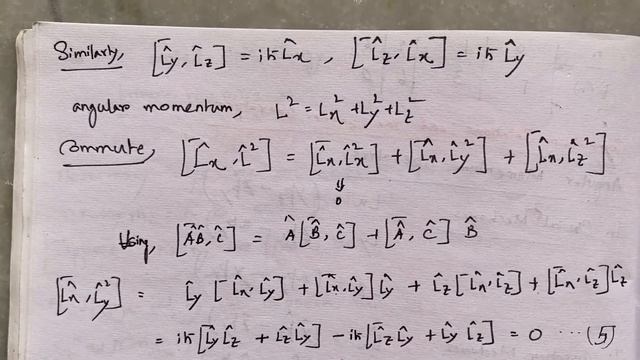 Similarly, [L̂y, L̂z] = iħ L̂x , [L̂z, L̂x] = iħ L̂y
angular momentum, L² = Lx² + Ly² + Lz²
Commute, [L̂x, L̂²] = [L̂x, L̂x²] + [L̂x, L̂y²] + [L̂x, L̂z²]
⇓
0
Using, [ÂB̂, Ĉ] = Â[B̂, Ĉ] + [Â, Ĉ] B̂
[L̂x, L̂y²] = L̂y [L̂x, L̂y] + [L̂x, L̂y] L̂y + L̂z [L̂x, L̂z] + [L̂x, L̂z] L̂z
= iħ[L̂y L̂z + L̂z L̂y] - iħ[L̂z L̂y + L̂y L̂z] = 0 ... (5)